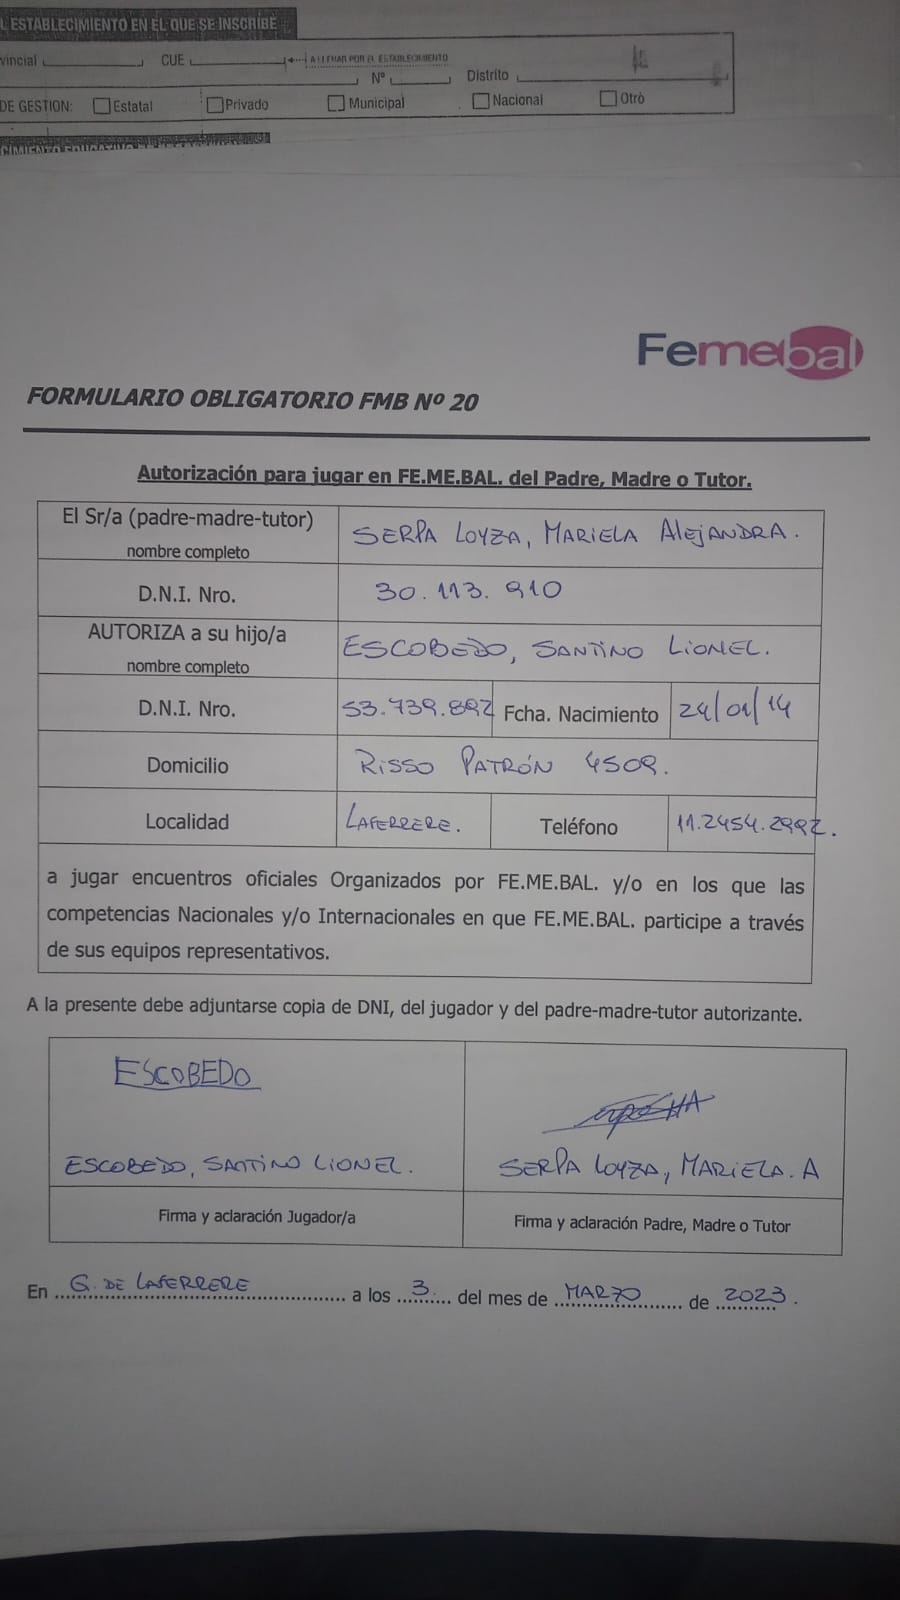 L ESTABLECIMIENTO EN EL QUE SE INSCRIBE
vincial CUE A LLENAR POR EL ESTABLECIMIENTO
Nº Distrito
DE GESTION: Estatal Privado Municipal Nacional Otro
Femebal
FORMULARIO OBLIGATORIO FMB Nº 20
Autorización para jugar en FE.ME.BAL. del Padre, Madre o Tutor.
El Sr/a (padre-madre-tutor) nombre completo SERPA LOYZA, MARIELA ALEJANDRA.
D.N.I. Nro. 30.113.910
AUTORIZA a su hijo/a nombre completo ESCOBEDO, SANTINO LIONEL.
D.N.I. Nro. 53.739.892 Fcha. Nacimiento 24/01/14
Domicilio RISSO PATRÓN 4509.
Localidad LAFERRERE. Teléfono 11.2454.2992.
a jugar encuentros oficiales Organizados por FE.ME.BAL. y/o en los que las
competencias Nacionales y/o Internacionales en que FE.ME.BAL. participe a través
de sus equipos representativos.
A la presente debe adjuntarse copia de DNI, del jugador y del padre-madre-tutor autorizante.
ESCOBEDO
ESCOBEDO, SANTINO LIONEL. SERPA LOYZA, MARIELA. A
Firma y aclaración Jugador/a Firma y aclaración Padre, Madre o Tutor
En G. DE LAFERRERE a los 3 del mes de MARZO de 2023.